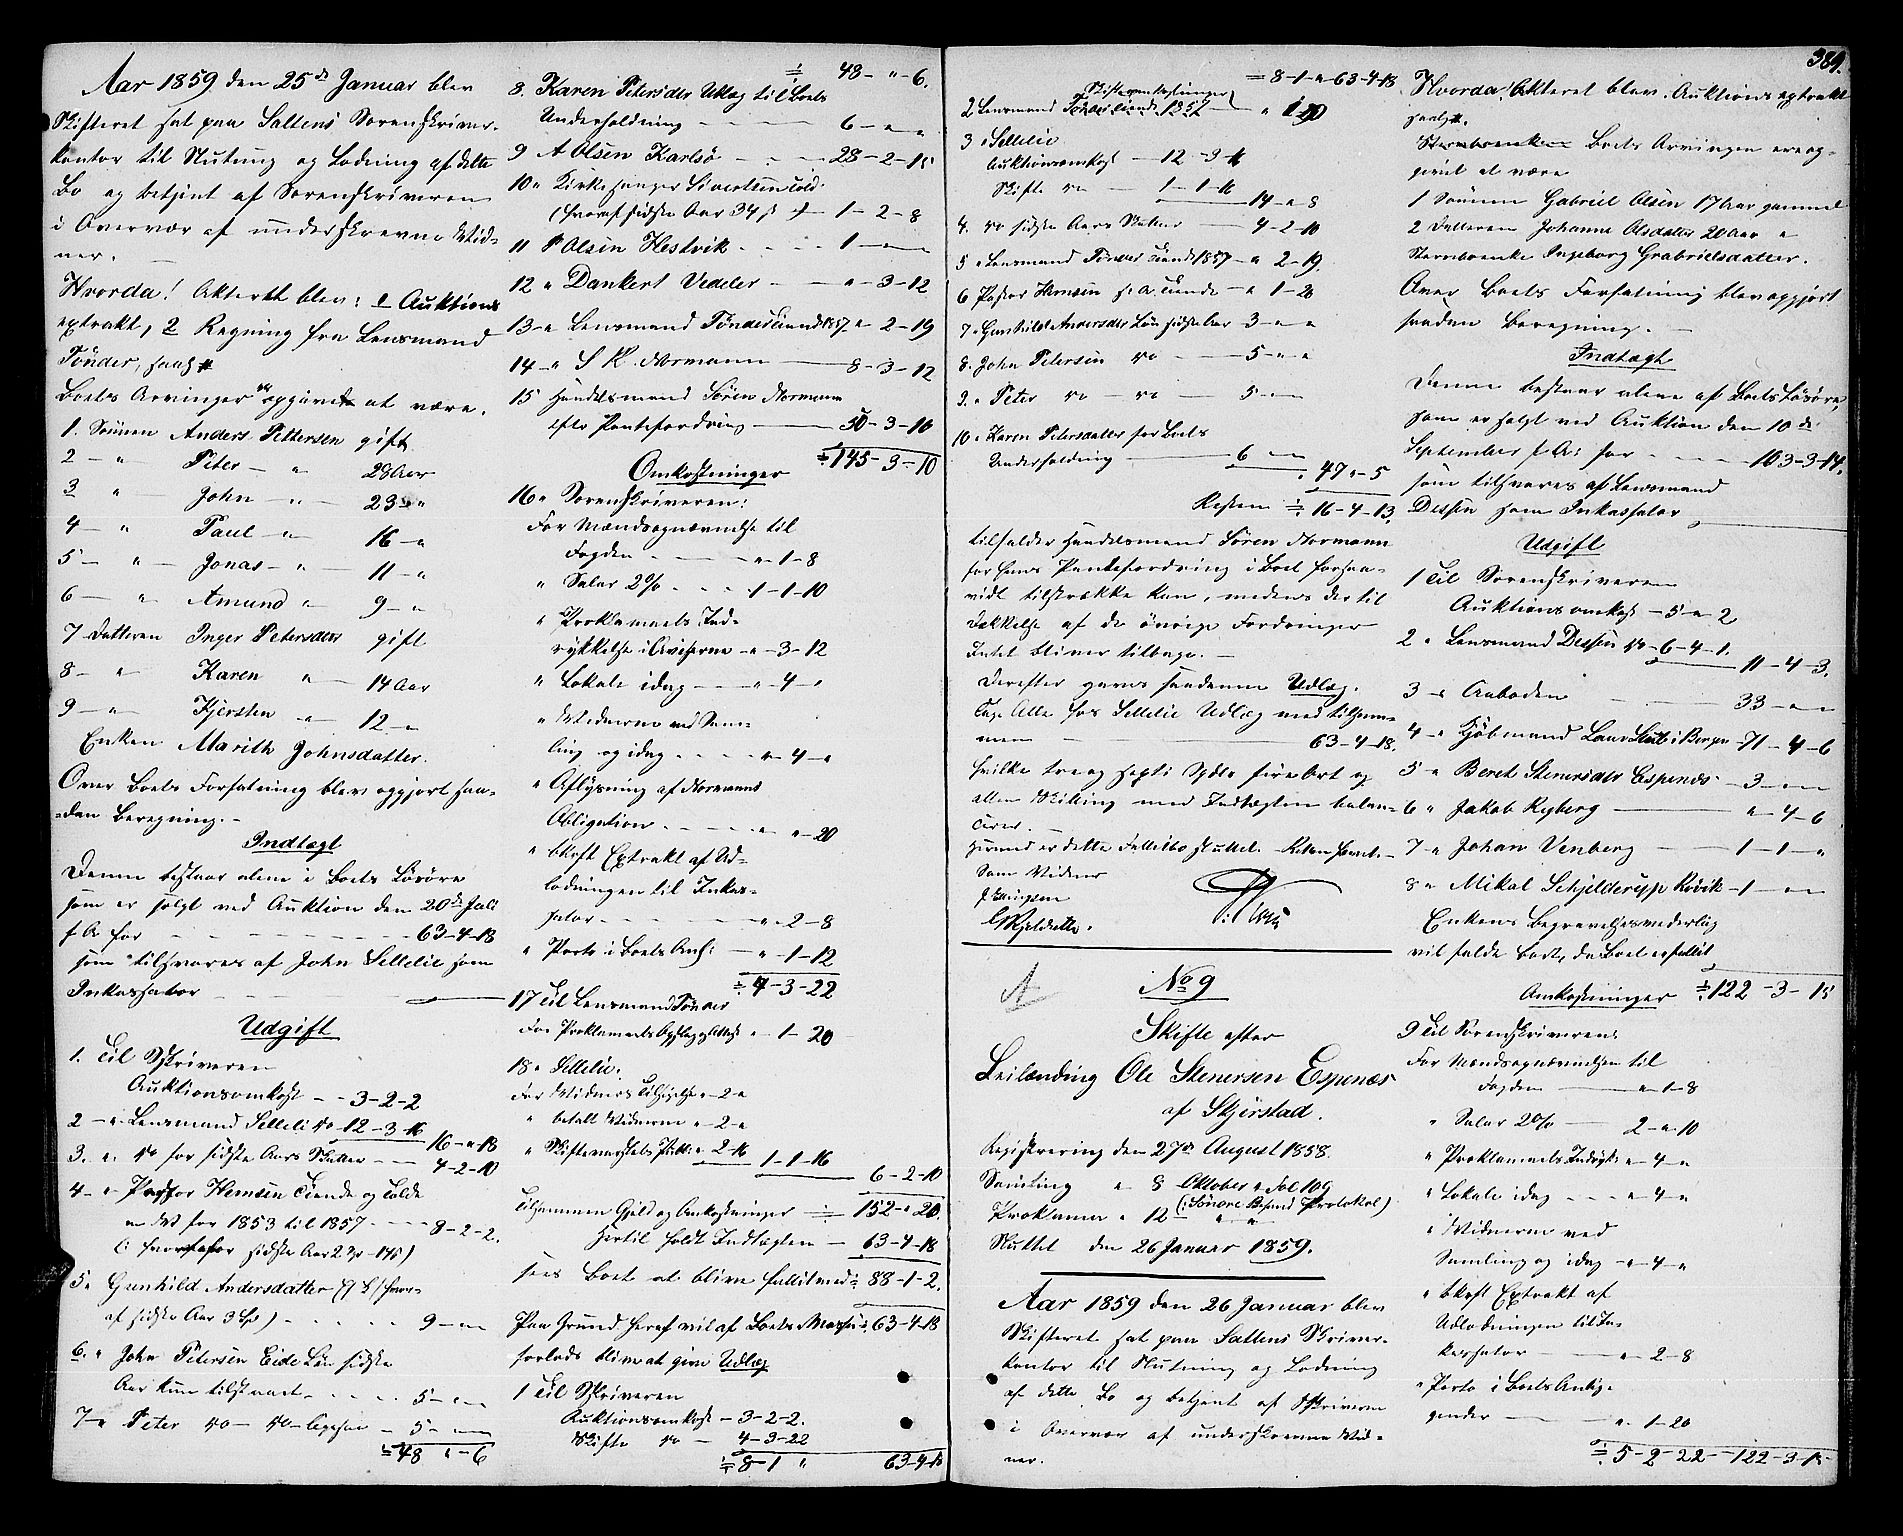 Aar 1859 den 25de Januar blev
Skifteret sat paa Saltens Sorenskriver-
kontor til Slutning og Lodning af dette
Bo og betjent af Sorenskriveren
i Overvær af underskrevne Vid-
ner.
Hvorda! Akteret blev: 1 Auktions
extrakt, 2 Regning fra Lensmand
Tönder, saal
Boets Arvinger opgives at være.
1. Sönnen Anders Pettersen gift
2 — " Peter — " 28 Aar
3 " — John — " — 23 — "
4 — " Paul — " 16 — "
5 — " — Jonas — " — 11 — "
6 — " Amund " — 9 — "
7 Datteren Inger Petersdatter gift
8 — " Karen " — 14 Aar
9 — " — Kjersten — " — 12 — "
Enken Marith Johnsdatter.
Over Boets Forfatning blev opgjort saa-
dan Beregning.
Indtægt
Denne bestaar alene i Boets Lösöre
som er solgt ved Auktion den 20de Juli
f A for — 63-4-18
som tilsvares af John Sellelie som
Inkassator
Udgift
1. Til Skriveren
Auktionsomkost — 3-2-2
2 — " Lensmand Sellelie do 12-3-16
16 — " 18
3. " do for sidste Aars Skatter — 4-2-10
4 — " Pastor Hemsen Tiende og Told
for 1853 til 1857 — 8-2-2.
(: hvoraf for sidste Aar
5 " Gunhild Andersdatter
af sidste Aar 3 Spd) — 9 — " — "
6. " John Petersen Eide Lön sidste
Aar — 5 — " — "
7 — " Peter do — do — 5 — " — "
48 " — 6
48 — " — 6.
8. Karen Petersdtr Udlæg til Boets
Underholdning — 6 — " — "
9 A Olsen Karlsö — 28-2-15
10 " Kirkesanger Sivertsen Told
(hvoraf sidste Aar 34 ß) — 1-2-8
11 P Olsen Hestvik — 1 — " — "
12 " Dankert Vedeler — " — 3-12
13 — " Lensmand Tönder Tiende 1857 " 2-19
14 — " S K. Normann — 8-3-12
15 Handelsmand Sören Normann
efter Pantefordring — 50-3-10
145-3-10
Omkostninger
16 " Sorenskriveren:
For Mændsopnævnelse til
Fogden — " — 1-8
" Salar 2% — 1-1-10
" Proklamaets Ind-
rykkelse i Aviserne — " — 3-12
" Lokale idag — " — 4 — "
" Vidnerne ved Sam-
ling og idag — " — 4 — "
" Aflysning af Normanns
Obligation — " — " — 20
" bkrft Extrakt af Ud-
lodningen til Inkas-
sator — " — 2-8
" Porto i Boets Anl: — " — 1-12
4-3-22
17 Til Lensmand Tönder
For Proklamaets Opslag og Attest " — 1-20
18 " Sellelie.
For Vidners Tilsigelse " — 2 — "
" betalt Vidnerne " — 2 — "
" " 2-16
1-1-16
6-2-10
Tilsammen Gjeld og Omkostninger — 152 — " 20.
Hertil holdt Indtægten — 63-4-18
sees Boet at blive fallit med 88-1-2.
Paa Grund heraf vil af Boets Masse 63-4-18
forlods blive at give Udlæg
1 Til Skriveren
Auktionsomkost — 3-2-2.
Skifte do — 4-3-22
8-1 " 63-4-18
384.
8-1- " 63-4-18
Skifteomkostninger
2 Lensmand Tönder Tiende 1857 — " 1-20
3 " Sellelie
Auktionsomkost — 12-3-16
Skifte do — 1-1-16
14 — " 8
4. do sidste Aars Skatter — 4-2-10
5 " Lensmand Tönder Tiende 1857 — " 2-19.
6 Pastor Hemsen f. A. Tiende — " 1-28
7 " Gunhild Andersdtr Lön sidste Aar 3 — " — "
8. John Petersen do — 5 — " — "
9. " Peter do — do — 5 — " — "
10 " Karen Petersdatter for Boets
Underholdning — 6 — " — "
47 " — 5
Resten 16-4-13.
tilfalder Handelsmand Sören Normann
for hans Pantefordring i Boet forsaa-
vidt tilstrække kan, medens der til
Dækkelse af de övrige Fordringer
Intet bliver tilbage. —
Derefter gaves saadanne Udlæg:
Tage Alle hos Sellelie Udlæg med tilsam-
men — 63-4-18.
hvilke tre og sexti Spdlr fire Ort og
atten Skilling med Indtægten balan-
cerer.
Hermed er dette Fallitbo sluttet.
Som Vidner
No 9
Skifte efter
Leilænding Ole Stenersen Espenæs
af Skjerstad.
Registrering den 27de August 1858.
Samling " 8 Oktober " Fol 109
(: Söndre Besind Protokol)
Proklama " 12 " "
Sluttet den 26 Januar 1859.
Aar 1859 den 26 Januar blev
Skifteret sat paa Saltens Skriver-
kontor til Slutning og Lodning
af dette Bo og betjent af Skriveren
i Overvær af underskrevne Vid-
ner.
Hvorda! Akteret blev. Auktions extrakt
saal
Boets Arvinger ere op-
givet at være
1 Sönnen Gabriel Olsen 17 Aar gammel
2 Datteren Johanna Olsdatter 20 Aar "
Stervboenke Ingeborg Grabrielsdatter.
Over Boets Forfatning blev opgjort
saadan Beregning. —
Indtægt
Denne bestaar alene af Boets Lösöre,
som er solgt ved Auktion den 10de
September f A: for — 103-3-14.
som tilsvares af Lensmand
Dessen som Inkassator
Udgift
1 Til Sorenskriveren
Auktionsomkost — 5 " 2
2 " Lensmand Dessen do — 6-4-1.
11-4-3.
3 — " Aaboden — 33 — " — "
4 — " Kjöbmand i Bergen 71-4-6
5 " Beret Stenersdtr Espenæs — 3 — " — "
6 " Jakob Ryberg — " — 4-6
7 — " Johan Venberg — 1-1 — "
8 " Mikal Schjelderup Rövik — 1 — " — "
Enkens Begravelsesvederlag
vil falde bort, da Boet er fallit
122-3-15
Omkostninger
9 Til Sorenskriveren:
For Mændsopnævnelsen til
Fogden — " — 1-8
" Salar 2% — 2 — " 10
" Proklamaets Indryk: " — 4 — "
" Lokale idag — " — 4 — "
" Vidnerne ved
Samling og idag — " — 4 — "
" bkrft Extrakt af
Udlodningen til In-
kassator — " — 2-8
" Porto i Boets Anlig-
gender — " — 1-20
5-2-22 — 122-3-15